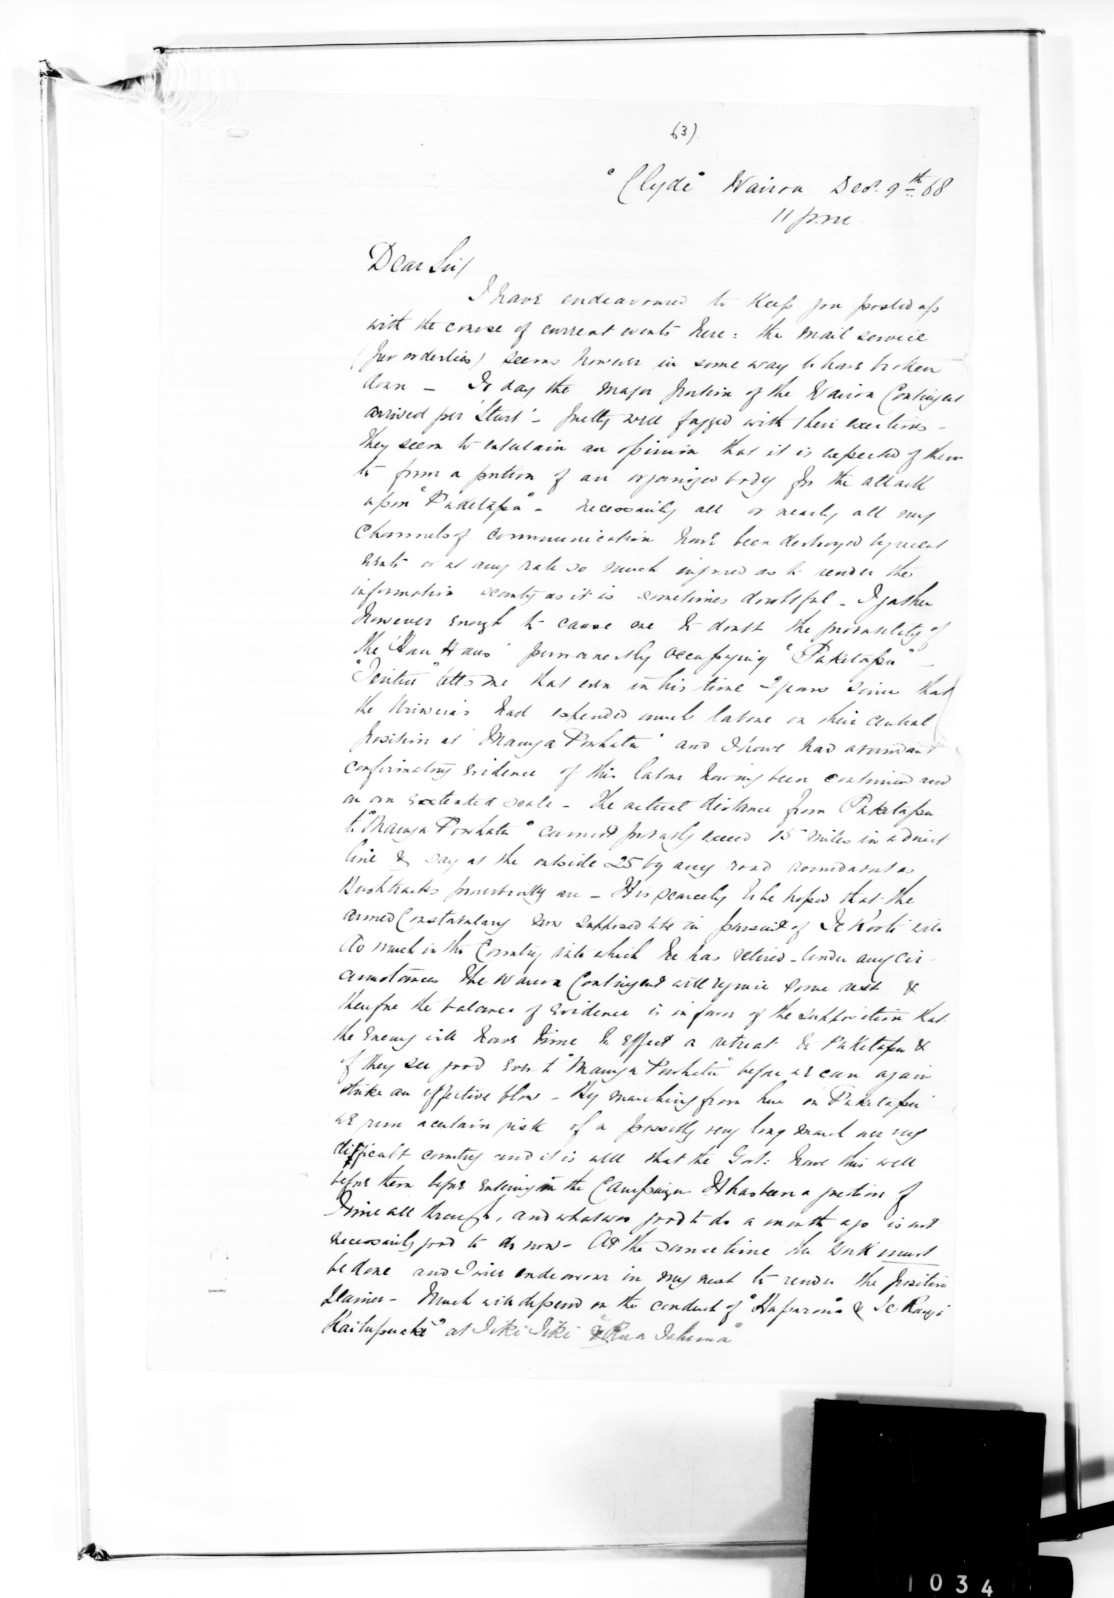 63)
"Clyde" Wairoa Decr. 9th 68
11 p.m
Dear Sir/
I have endeavoured to keep you posted up
with the course of current events here: the mail service
(per orderlies) seems however in some way to have broken
down - To day the major portion of the Wairoa Contingent
arrived per 'Sturt' - pretty well fagged with their exertions -
They seem to entertain an opinion that it is expected of them
to form a portion of an organized body for the attack
upon "Puketapu" - necessarily all or nearly all my
Channels of communication have been destroyed by recent
events or at any rate so much injured as to render the
information scanty as it is sometimes doubtful - I gather
however enough to cause me to doubt the probability of
the 'Hau Haus' permanently occupying "Puketapu" -
tells me that even in his time 2 years since that
the Uriwera's had expended much labour on their central
position at "Maunga Powhatu" and I have had abundant
confirmatory evidence of this labour having been continued and
on an extended scale - The actual distance from Puketapu
to "Maunga Powhatu" cannot possibly exceed 15 miles in a direct
line & say at the outside 25 by any road roundabout as
Bush tracks proverbially are - It is scarcely to be hoped that the
armed Constabulary now supposed to be in pursuit of Te Kooti will
do much in the Country into which he has retired - Under any cir-
cumstances the Wairoa Contingent will require some rest &
therefore the balance of evidence is in favor of the supposition that
the enemy will have time to effect a retreat to Puketapu &
if they see good even to "Maunga Powhatu" before we can again
strike an effective blow - By marching from here on Puketapu
we run a certain risk of a possibly very long march over very
difficult country and it is well that the Govt: have this well
before them before entering on the Campaign It has been a question of
Time all through, and what was good to do a month ago is not
necessarily good to do now - At the same time the work must
be done and I will endeavour in my next to render the position
plainer - Much will depend on the conduct of "Hapurona" & Te Rangi
at Tiki Tiki &
1034